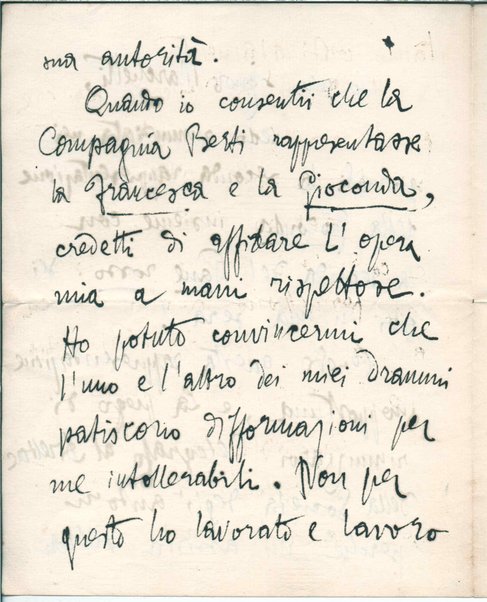 sua autorità.
Quando io consentii che la
Compagnia Berti rappresentasse
la Francesca e la Gioconda,
credetti di affidare l'opera
mia a mani rispettose.
Ho potuto convincermi che
l'uno e l'altro dei miei drammi
patiscono difformazioni per
me intollerabili. Non per
questo ho lavorato e lavoro